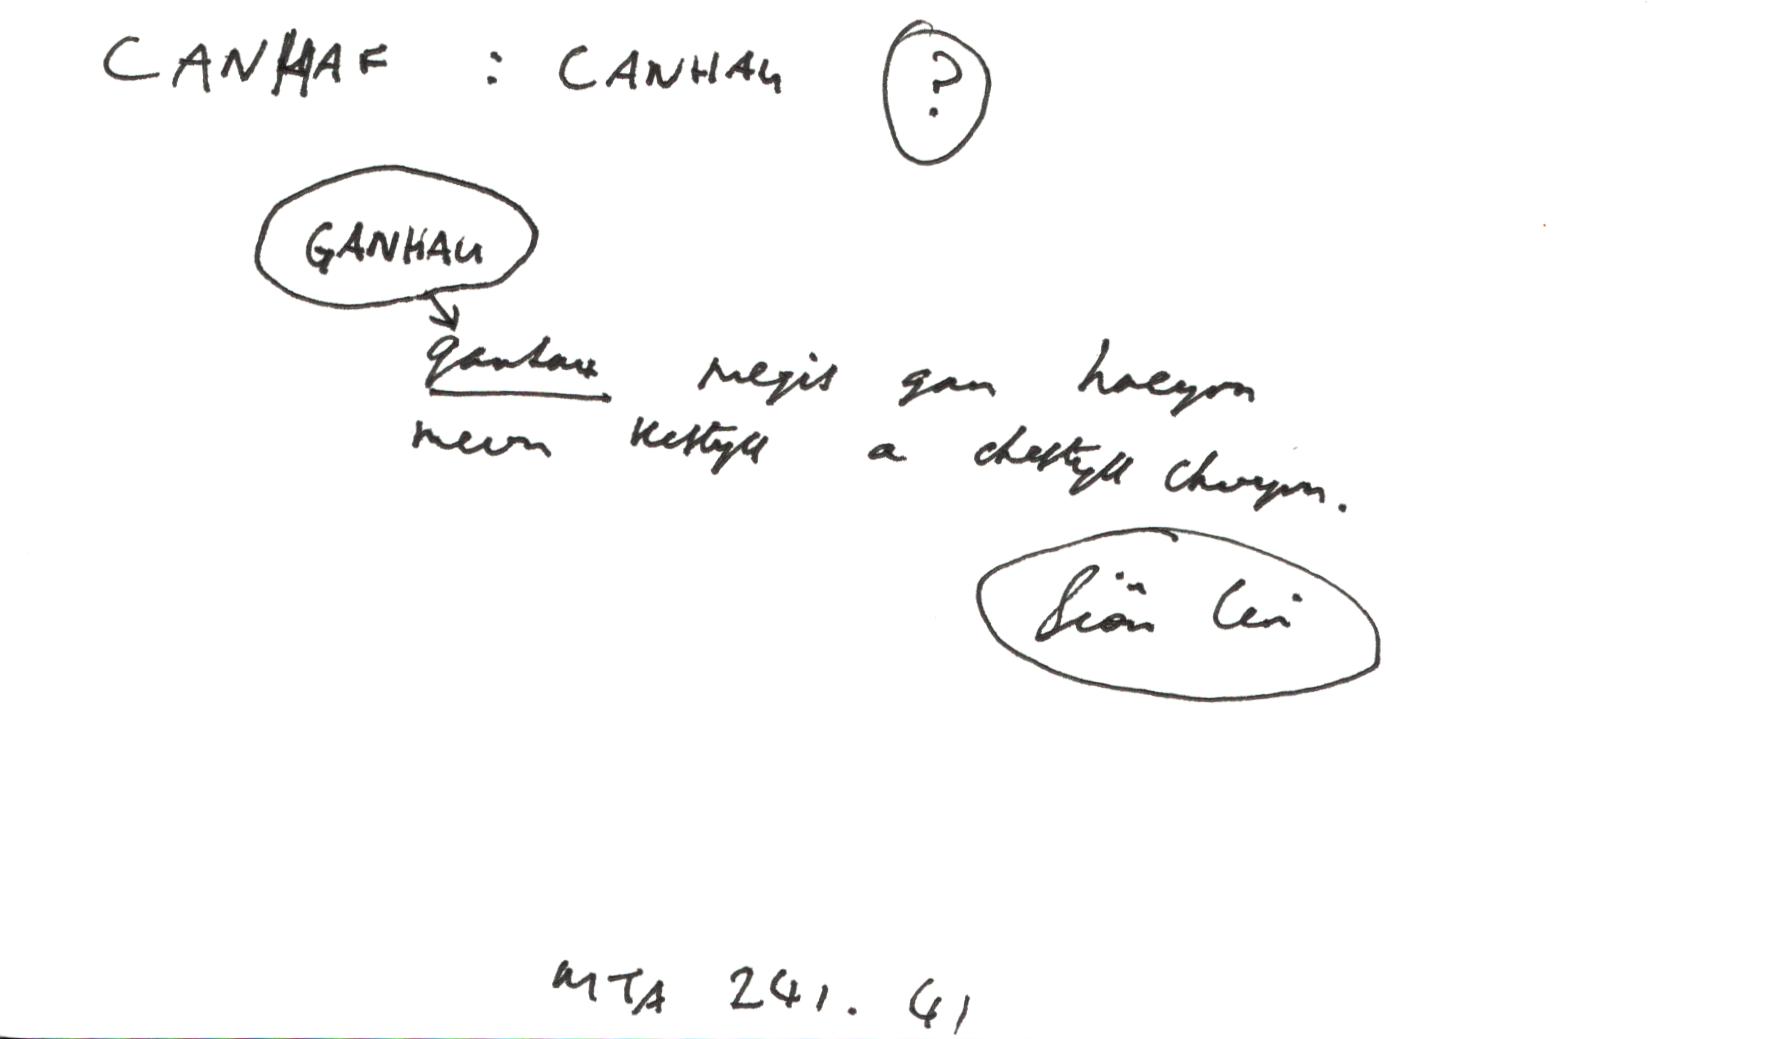 CANHAF : CANHAU ?
GANHAU
ganhau megis gan hoeyon
mewn kestyll a chestyll chwyrn.
Siôn Ceri
MTA 241. 41